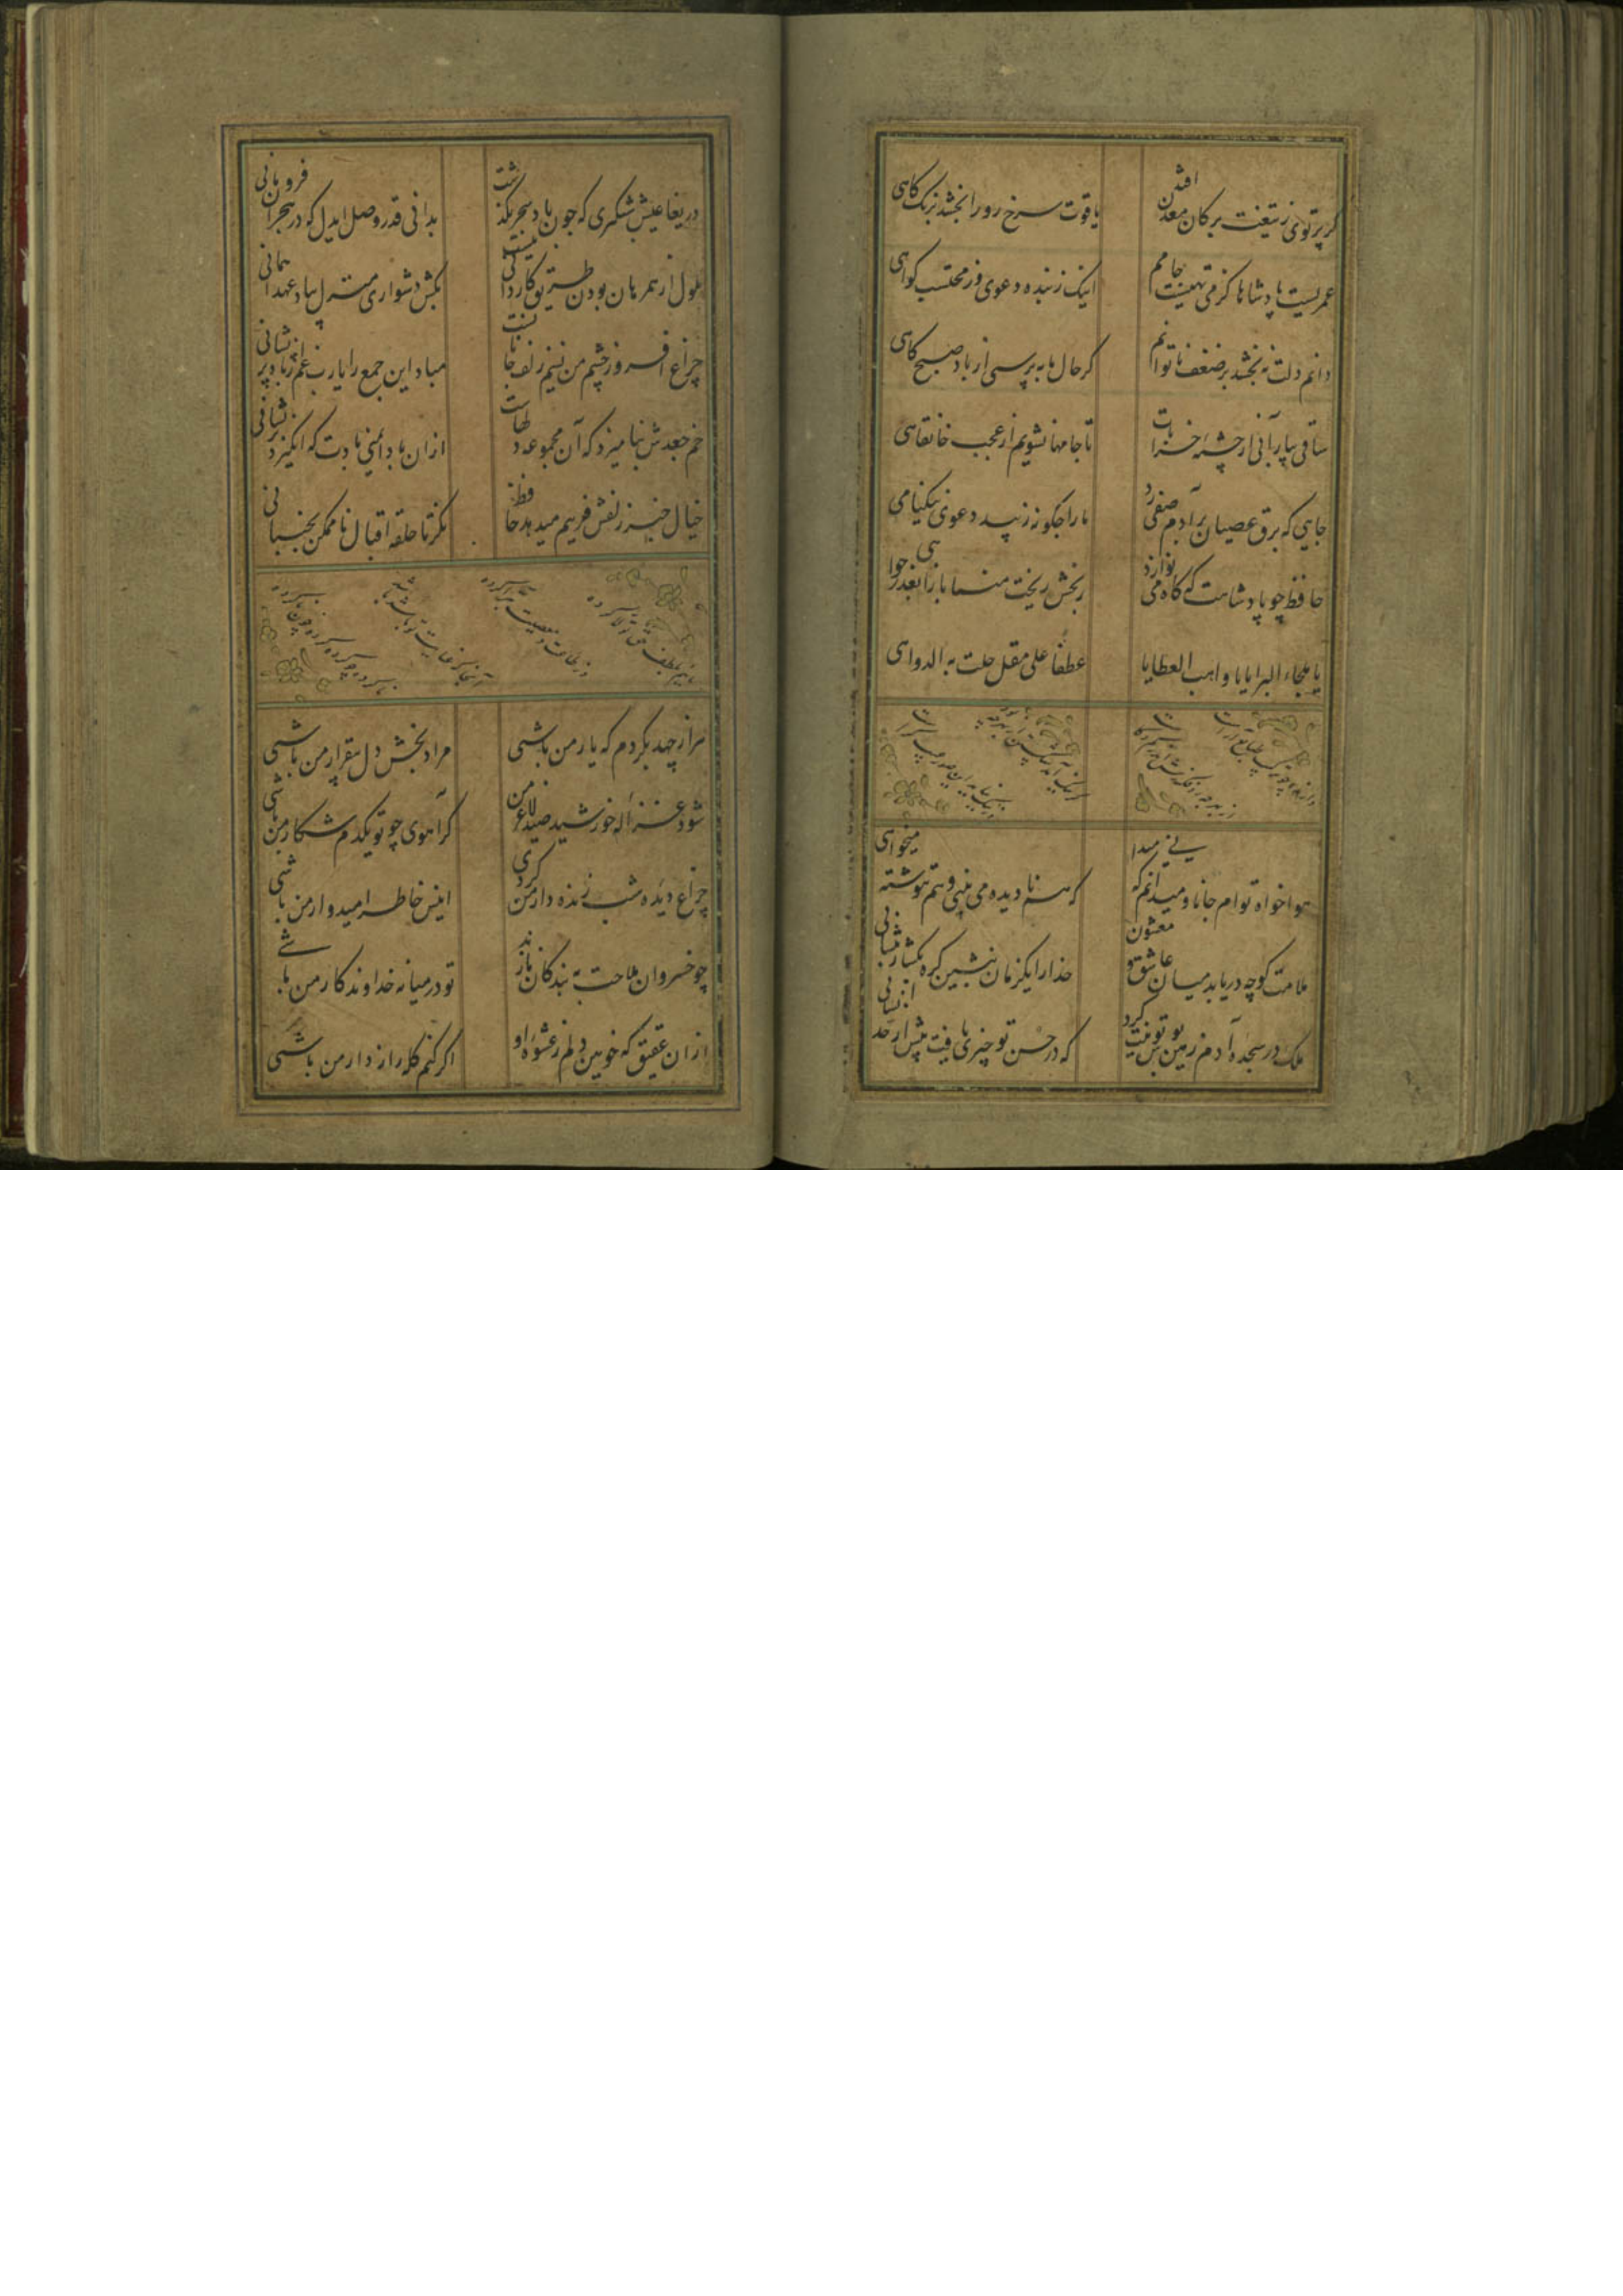 کر پرتوی ز تیغت بر کان معدن افتد
یاقوت سرخ رو را بخشد برنک کاهی
عمریست پادشاها کز می تهیست جامم
اینک ز بنده دعوی وز محتسب کواهی
دانم دلت نه بخشد بر ضعف ناتوانم
کر حال ما به پرسی از باد صبح کاهی
ساقی بیار آبی از چشمه خرابات
تا جامها نشویم از عجب خانقاهی
جایی که برق عصیان بر آدم صفی زد
ما را جکونه زیبد دعوی نیکنامی
حافظ چو پادشاهت که کاه می نوازد
رنجش ز بخت منما باز آ بعذر خواهی
یا ملجاء البرایا یا واهب العطایا
عطفا علی مقل حلت به الدواهی
هوا خواه توام جانا و میدانم که میدانی
که هم نا دیده می بینی و هم ننوشته میخوانی
ملامت کو چه دریابد میان عاشق و معشوق
خدا را یکزمان بنشین کره بکشا ز پیشانی
ملک در سجده آدم زمین بوس تو نیت کرد
که در حسن تو چیزی یافت بیش از حد انسانی
دریغا عیش شبکیری که جون باد سحر بکذشت
بدانی قدر وصل ایدل که در هجران فرو مانی
ملول از همرهان بودن طریق کاردانی نیست
بکش دشواری منزل بیاد عهد آسانی
چراغ افروز چشم من نسیم زلف جانانست
مباد این جمع را یا رب غم از باد پریشانی
خم جعدش بنامیزد که آن مجموعه دلهاست
از آن باد ایمنی بادت که انکیزد پریشانی
خیال چنبر زلفش فریبم میدهد حافظ
نکر تا حلقه اقبال ناممکن نجنبانی
هزار جهد بکردم که یار من باشی
مراد بخش دل بیقرار من باشی
شود غزاله خورشید صید لاغر من
کر آهوی چو تو یکدم شکار من باشی
چراغ دیده شب زنده دار من کردی
انیس خاطر امیدوار من باشی
چو خسروان ملاحت به بندکان نازند
تو در میانه خداوندکار من باشی
از آن عقیق که خونین دلم ز عشوه او
اکر کنم کله راز دار من باشی